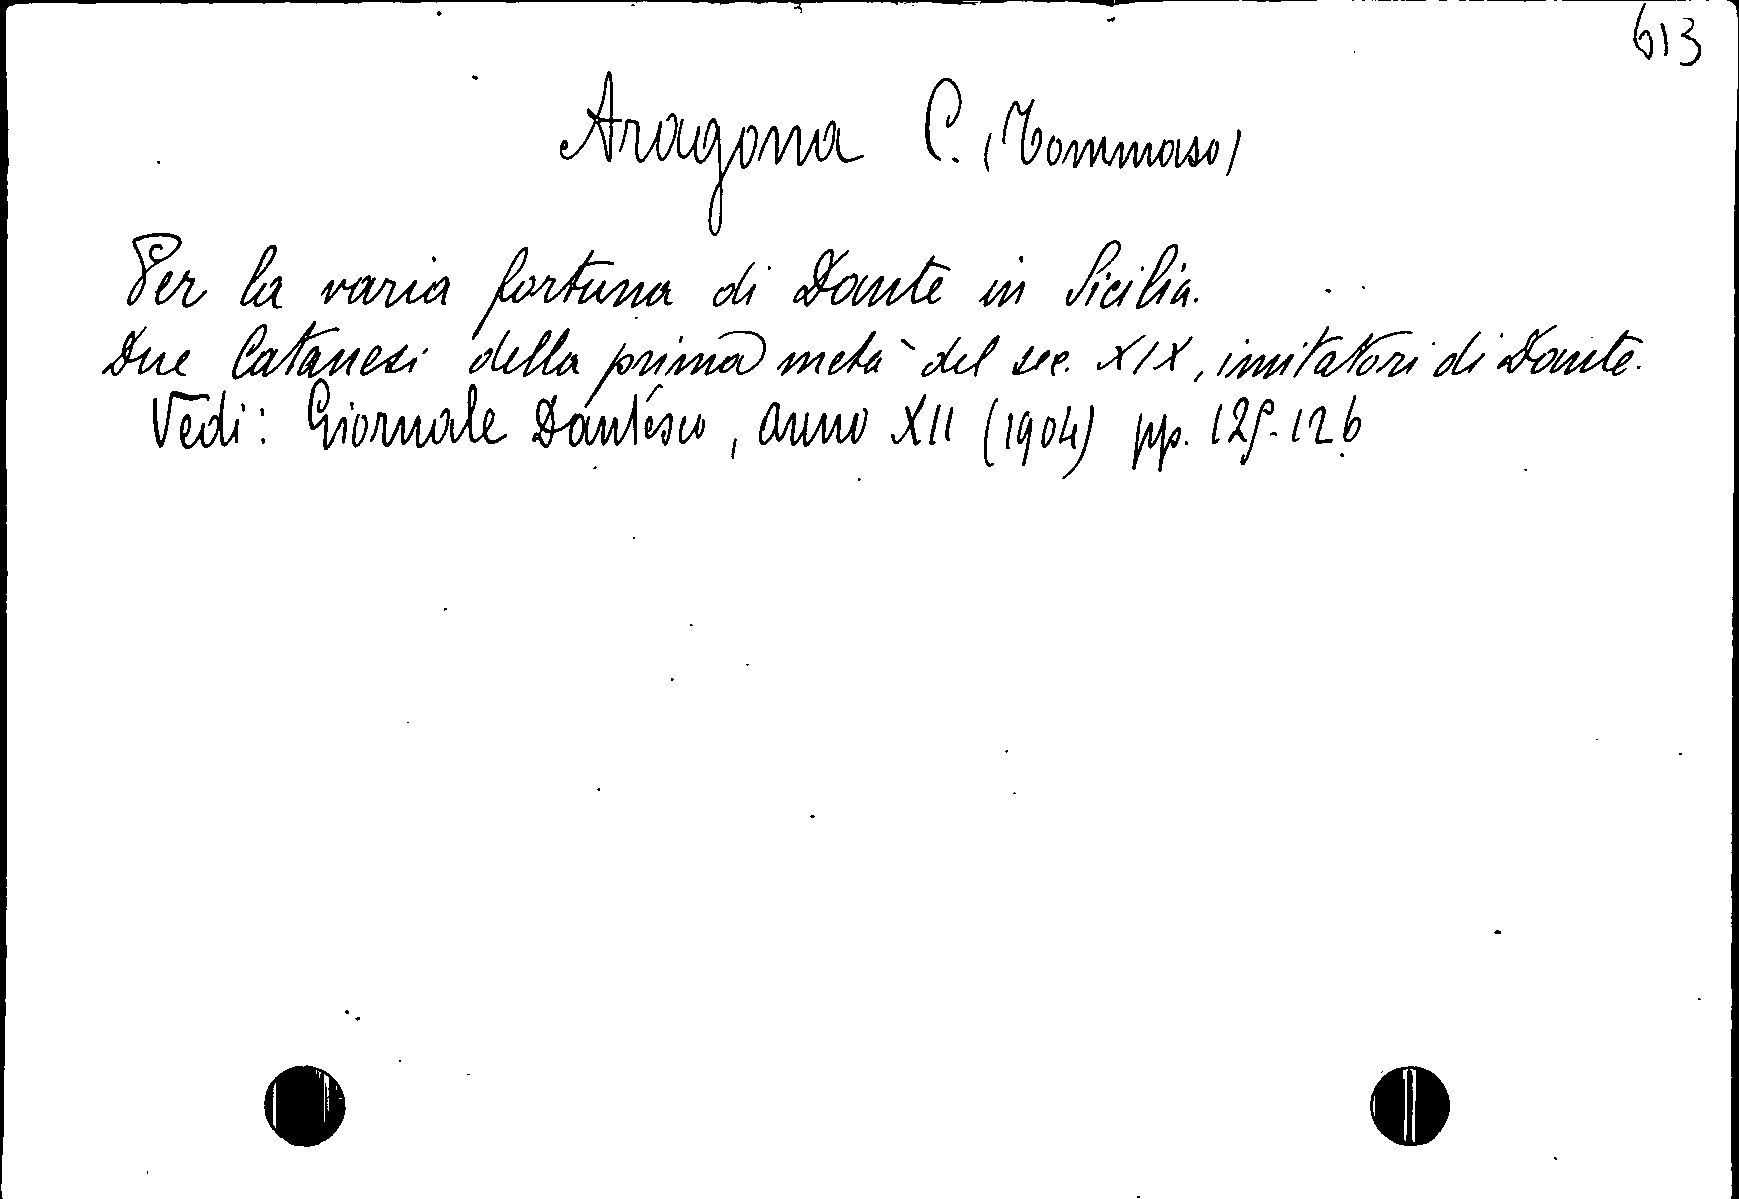 613
Aragona C. (Tommaso)
Per la varia fortuna di Dante in Sicilia.
Due Catanesi della prima metà del sec. XIX, imitatori di Dante.
Vedi: Giornale Dantesco, anno XII (1904) pp. 125-126